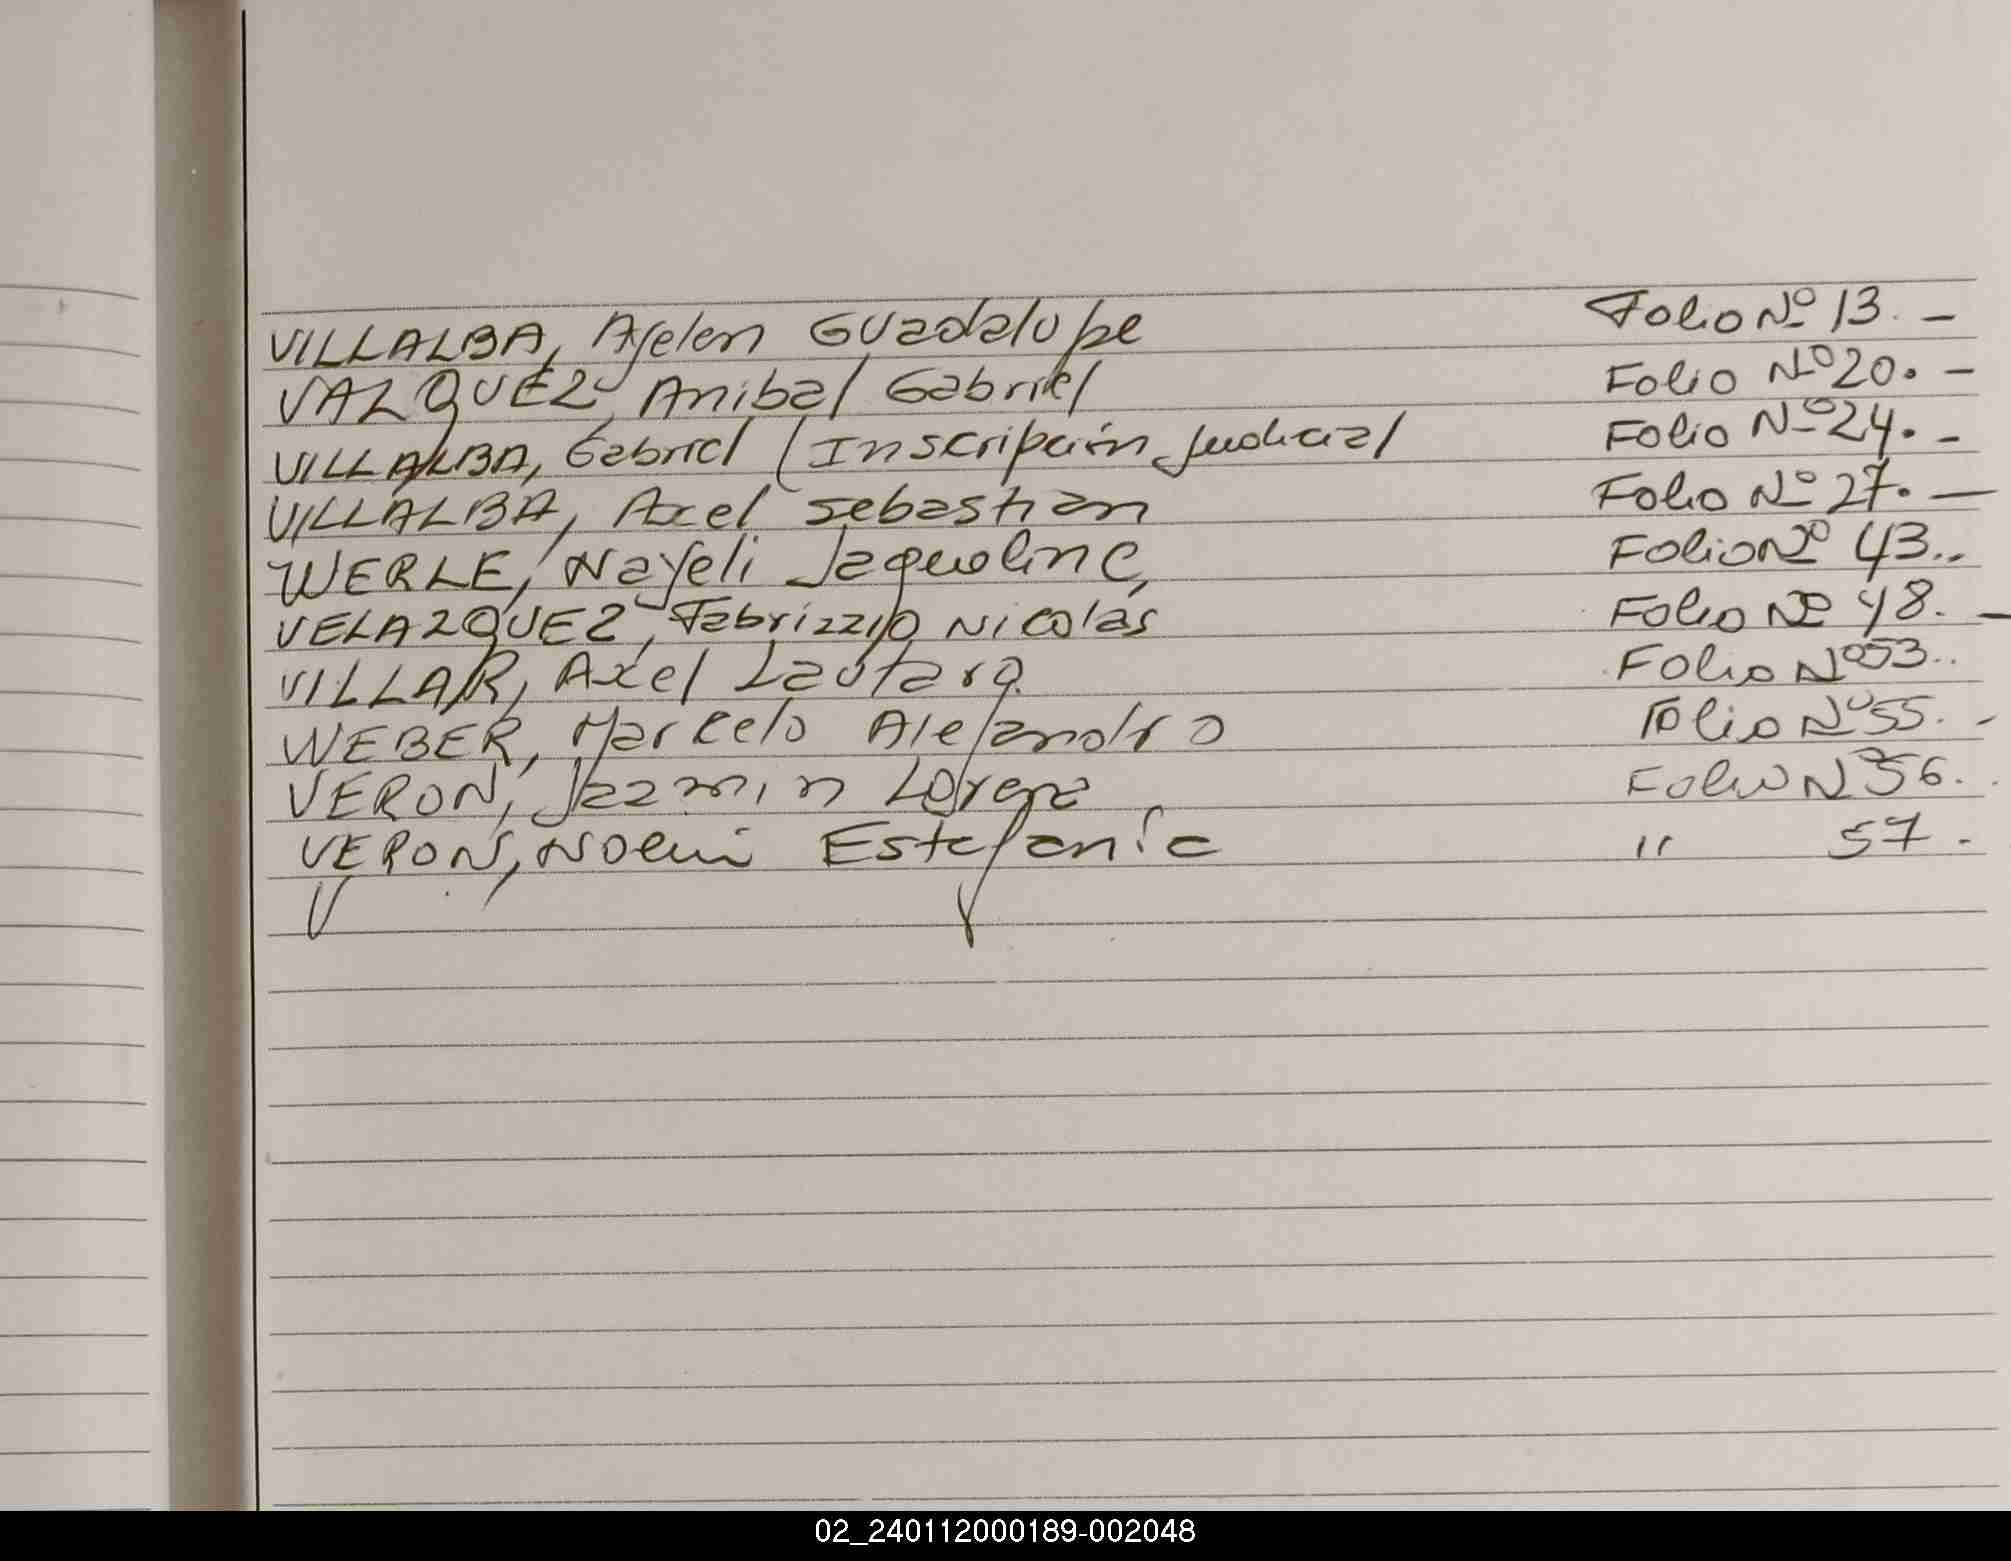 VILLALBA, Ayelen Guadalupe Folio Nº 13. -
VAZQUEZ, Anibal Gabriel Folio Nº 20. -
VILLALBA, Gabriel (Inscripción Judicial Folio Nº 24. -
VILLALBA, Axel Sebastian Folio Nº 27. -
WERLE, Nayeli Jaqueline, Folio Nº 43..
VELAZQUEZ, Fabrizzio Nicolas Folio Nº 48. -
VILLAR, Axel Lautaro Folio Nº 53..
WEBER, Marcelo Alejandro Folio Nº 55. -
VERON, Jazmin Lorena Folio Nº 56.
VERON, Noemi Estefanía " 57.
V
02_240112000189-002048